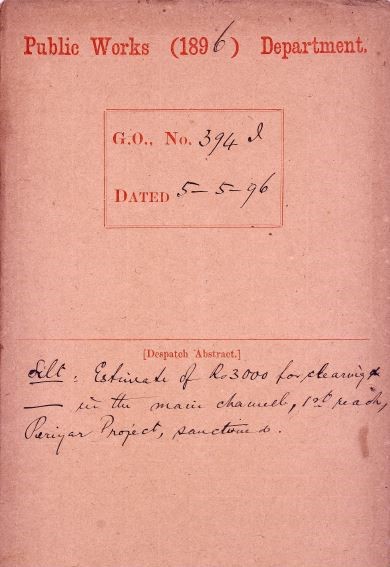 Public Works (1896) Department.
G.O., No. 394 I
DATED 5-5-96
[Despatch Abstract.]
Silt : Estimate of Rs 3000 for clearing
— in the main channel, 1st reach,
Periyar Project, sanctioned.